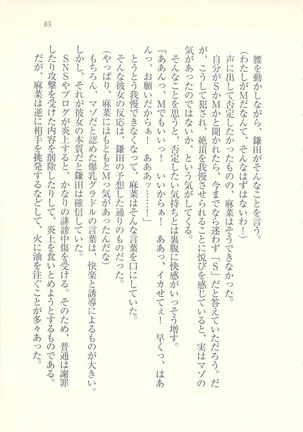 83
腰を動かしながら、鎌田がそんなことを言う。
(わたしがMだなんて、そんなはずはないわ!)
声に出して否定したかったものの、麻菜はそうできなかった。
自分がSかMかと聞かれたら、今までなら迷わず「S」だと答えていただろう。だ
が、こうして犯され、絶頂を我慢させられることに悦びを感じていると、実はマゾの
気があったのではないか、という気がしてくる。
そんなことを思うと、否定したい気持ちとは裏腹に快感がいっそう増す。
「ああんっ、Mでもいいっ! いいからぁ! ああっ、イカせてぇ! 早くっ、はあ
んっ、お願いだからぁ! あああっ……!」
とうとう我慢できなくなって、麻菜はそんな言葉を口にしていた。
そんな彼女の反応は、鎌田の予想した通りのものだった。
(やっぱり、麻菜にはもともとMっ気があったんだな)
もちろん、マゾだと認めた爆乳グラドルの言葉は、快楽と誘導によるものが大きい。
しかし、それが彼女の本質だと鎌田は確信していた。
SNSやブログが炎上すると、かなりの誹謗中傷を受ける。そのため、普通は謝罪
したり攻撃を受けた内容を削除したりして、炎上を食いとめようとするものである。
だが、麻菜は逆に相手を挑発するなどして、火に油を注ぐことが多々あった。